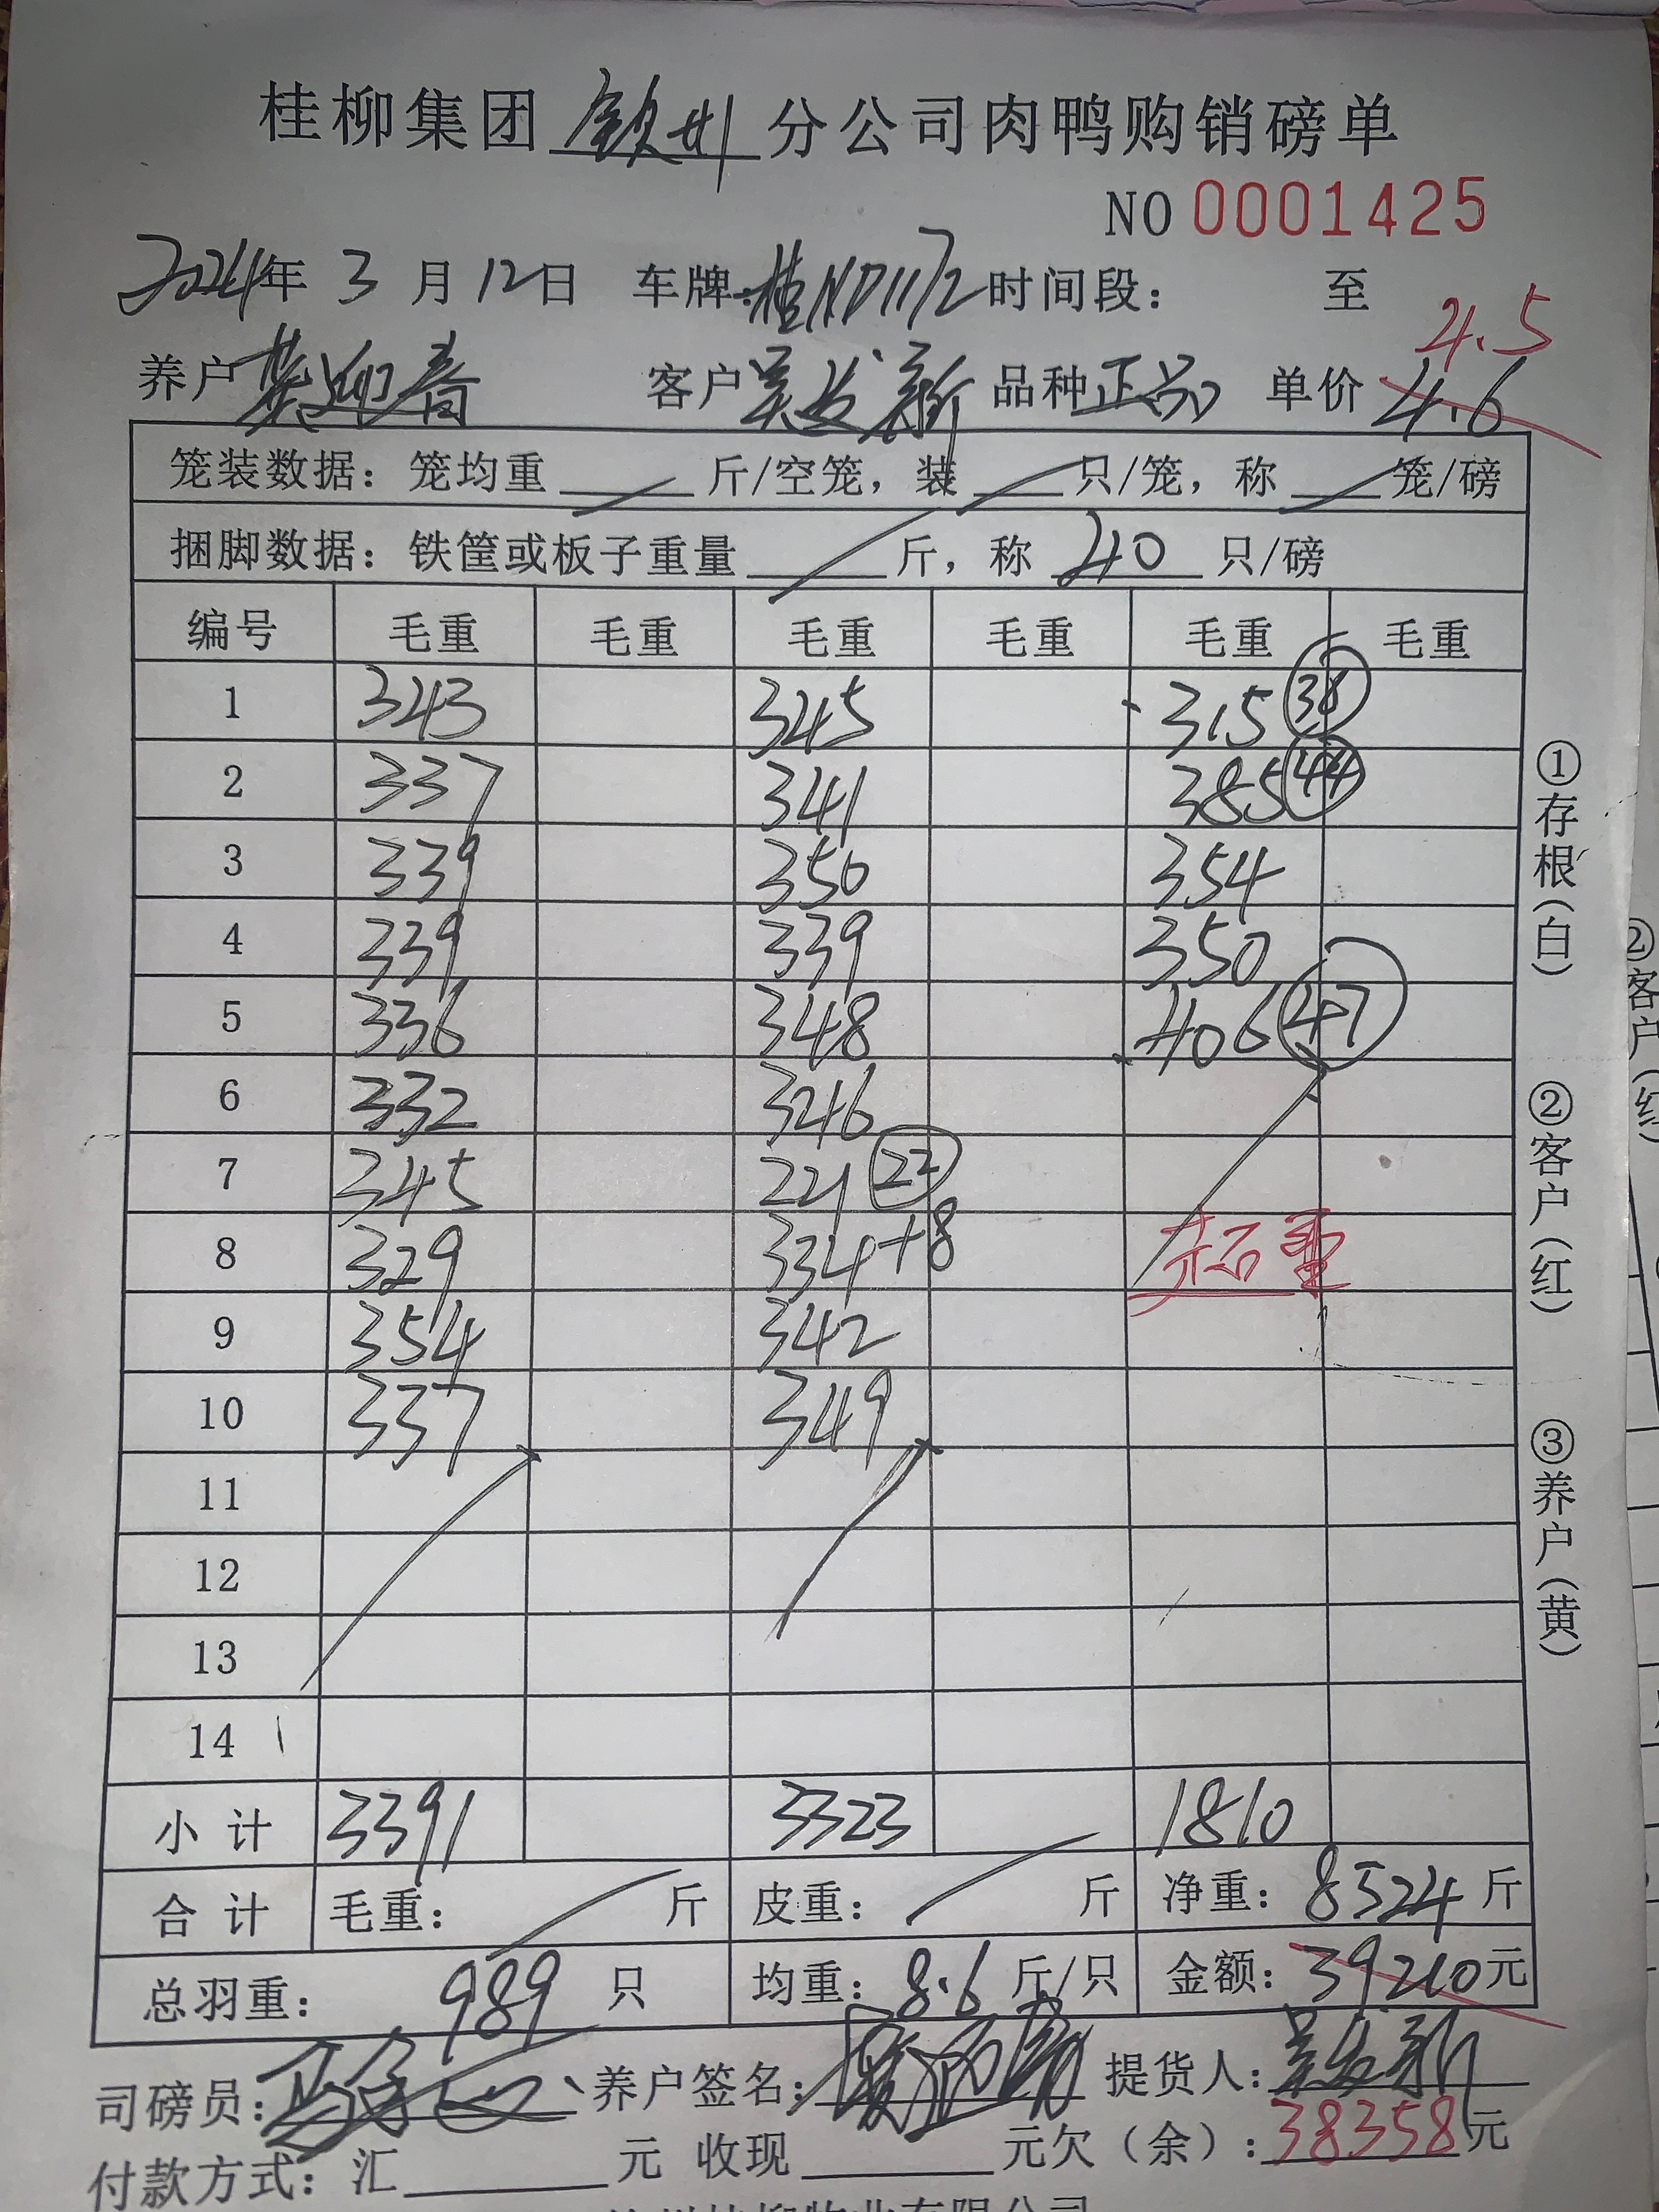 桂柳集团 钦州 分公司肉鸭购销磅单
NO 0001425
2024年 3 月 12日 车牌:桂ND1172 时间段: 至
4.5
养户 迎春 客户 吴发新 品种 正品 单价 4.6
笼装数据：笼均重 斤/空笼，装 只/笼，称 笼/磅
捆脚数据：铁筐或板子重量 斤，称 40 只/磅
编号 毛重 毛重 毛重 毛重 毛重 毛重
1 343 345 315 38
2 337 341 385 44
3 339 350 354
4 339 339 350
5 336 348 406 47
6 332 346
7 345 221 22
8 329 334+8 超重
9 354 342
10 337 349
11
12
13
14
小计 3391 3323 1810
合计 毛重： 斤 皮重： 斤 净重：8524 斤
总羽重： 989 只 均重：8.6 斤/只 金额：39210元
司磅员： 养户签名： 提货人：吴发新
付款方式：汇 元 收现 元欠（余）：38358元
①存根（白） ②客户（红） ③养户（黄）
②客户（红